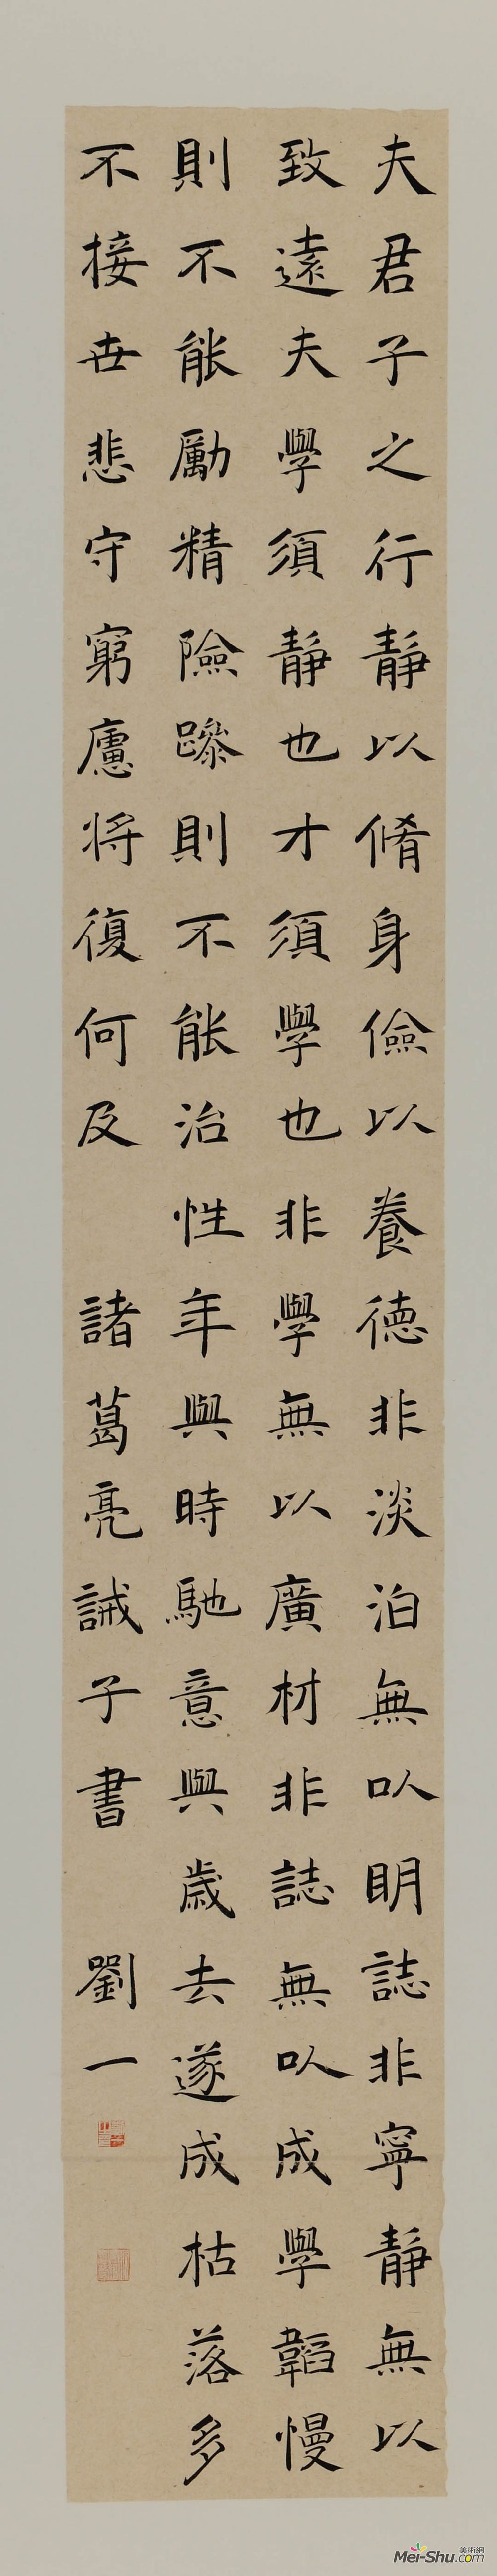 夫君子之行靜以脩身儉以養德非淡泊無㕥明誌非寧靜無以
致遠夫學須靜也才須學也非學無以廣材非誌無㕥成學韜慢
則不能勵精險躁則不能治性年與時馳意與歲去遂成枯落多
不接世悲守窮廬將復何及 諸葛亮誡子書 劉一
Mei-Shu.com 美術網